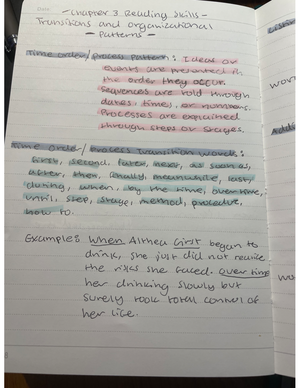 Date
- Chapter 3 Reading Skills -
Transitions and organizational
- Patterns -
Time order/process pattern: Ideas or
events are presented in
the order they occur.
Sequences are told through
dates, times, or numbers.
Processes are explained
through steps or stages.
Time order/process transition words:
first, second, later, next, as soon as,
after, then, finally, meanwhile, last,
during, when, by the time, over time,
until, step, stage, method, procedure,
how to.
Example: When Althea first began to
drink, she just did not realize
the risks she faced. Over time
her drinking slowly but
surely took total control of
her life.